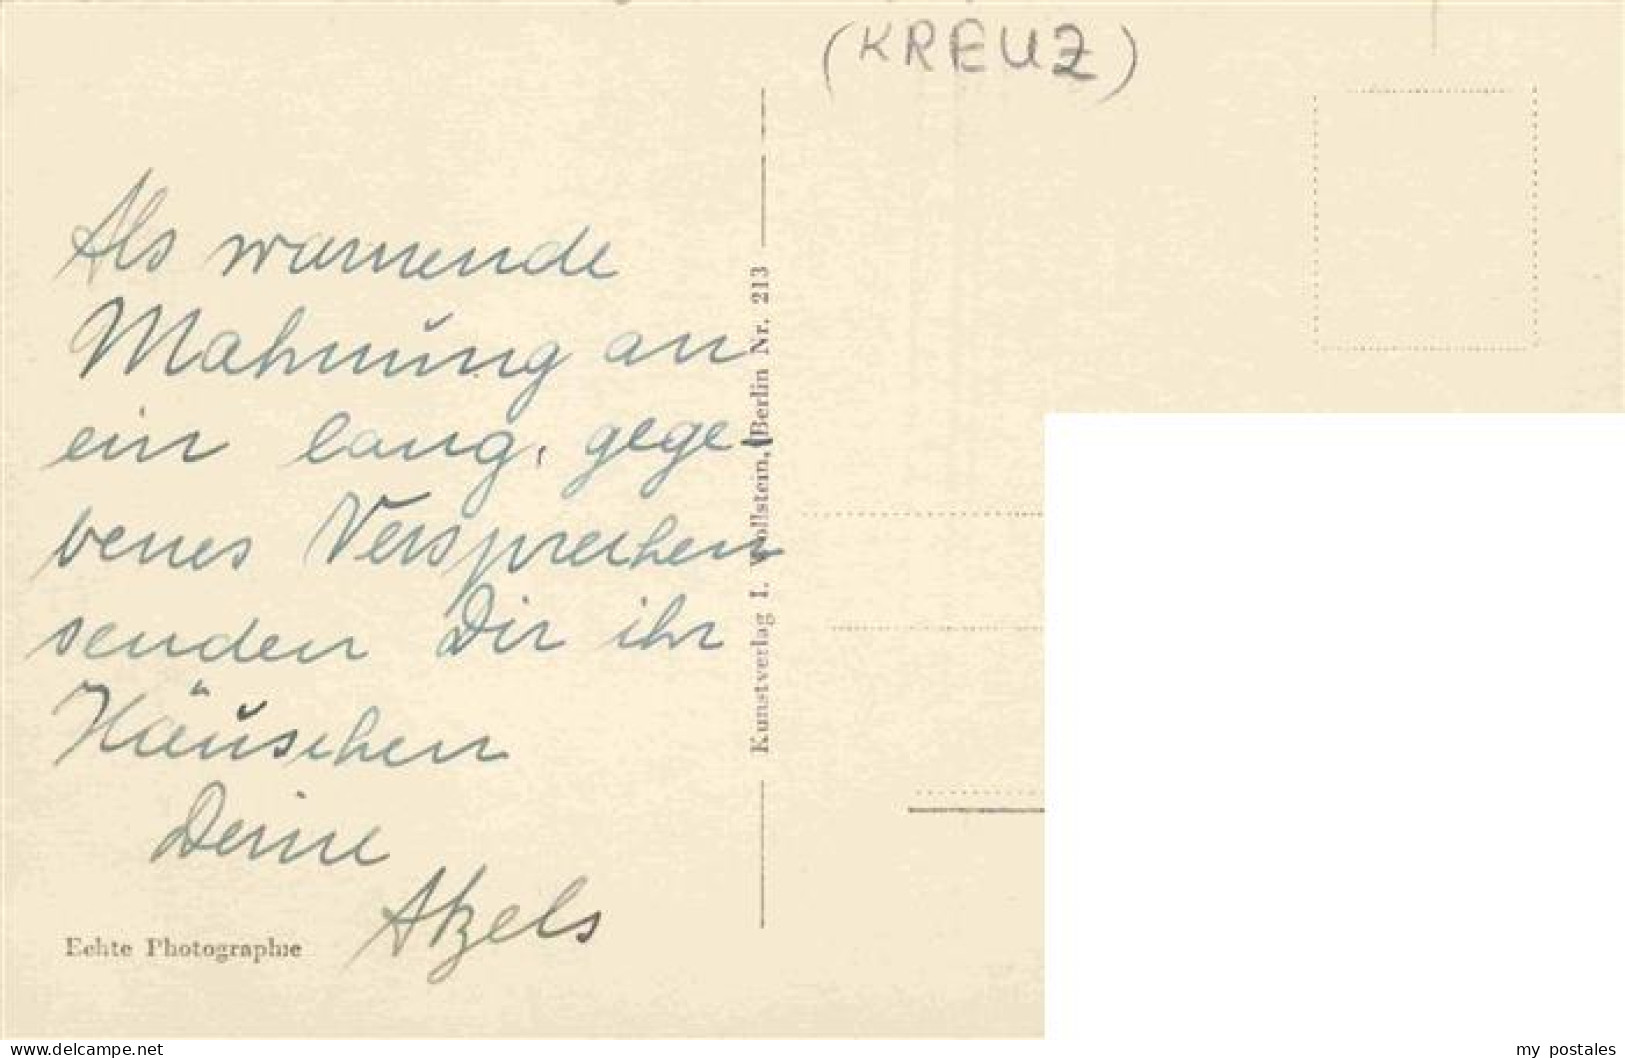 (KREUZ)
Als warnende
Mahnung an
ein lang, gege-
benes Versprechen
senden Dir ihr
Häuschen
Deine
Atzels
Echte Photographie
Kunstverlag I. Wollstein, Berlin Nr. 213
www.delcampe.net
my_postales